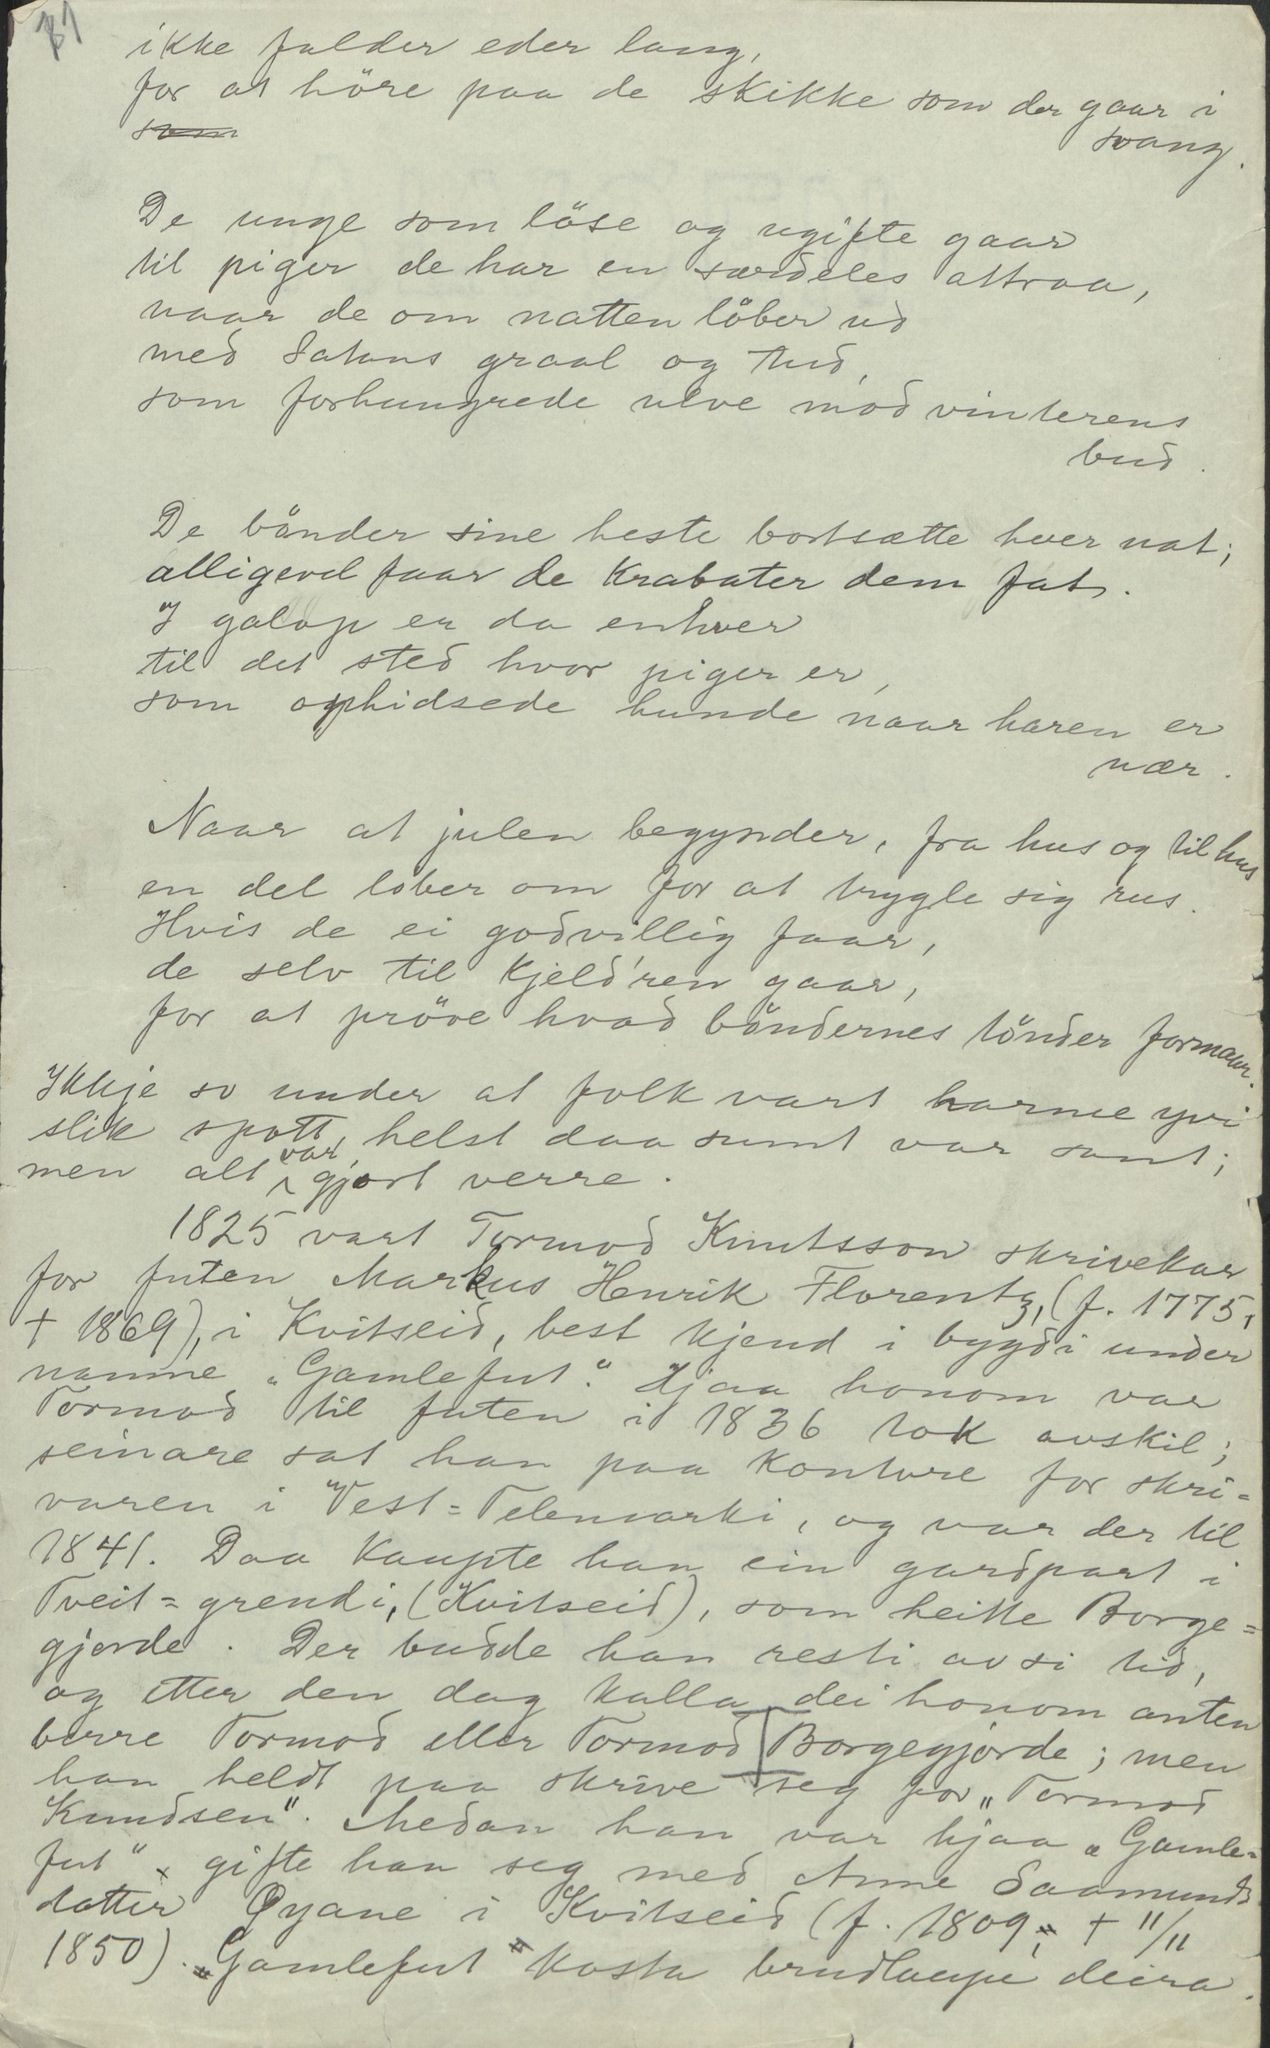 81
ikke falder eder lang,
for at höre paa de skikke som der gaar i
som svang.
De unge som löse og ugifte gaar
til piger de har en særdeles attraa,
naar de om natten löber ud
med Satans graal og tud,
som forhungrede ulve mod vinterens
bud.
De bönder sine heste bortsætte hver nat;
alligevel faar de krabater dem fat.
I galop er da enhver
til det sted hvor piger er,
som ophidsede hunde naar haren er
nær.
Naar at julen begynder, fra hus og til hus
en del løber om for at trygle sig rus.
Hvis de ei godvillig faar,
de selv til kjeld'ren gaar,
for at pröve hvad böndernes tönder formaar.
Ikkje so under at folk vart harme yvi
slik spott, helst daa sumt var sant;
men alt var gjort verre.
1825 vart Tormod Knutsson skrivekar
for futen Markus Henrik Florentz, (f. 1775,
+ 1869), i Kvitseid, best kjend i bygdi under
namne „Gamlefut“. Hjaa honom var
Tormod til futen i 1836 tok avskil;
seinare sat han paa kontore for skri=
varen i Vest=Telemarki, og var der til
1841. Daa kaupte han ein gardpart i
Tveit=grendi, (Kvitseid), som heitte Borge=
gjorde. Der budde han resti av si tid,
og etter den dag kalla dei honom anten
berre Tormod eller Tormod Borgegjorde; men
han heldt paa skrive seg for „Tormod
Knudsen“. Medan han var hjaa „Gamle=
fut“ gifte han seg med Anne Saamunds
dotter Øyane i Kvitseid (f. 1809, + 11/11
1850). „Gamlefut“ kosta brudlaupe deira.